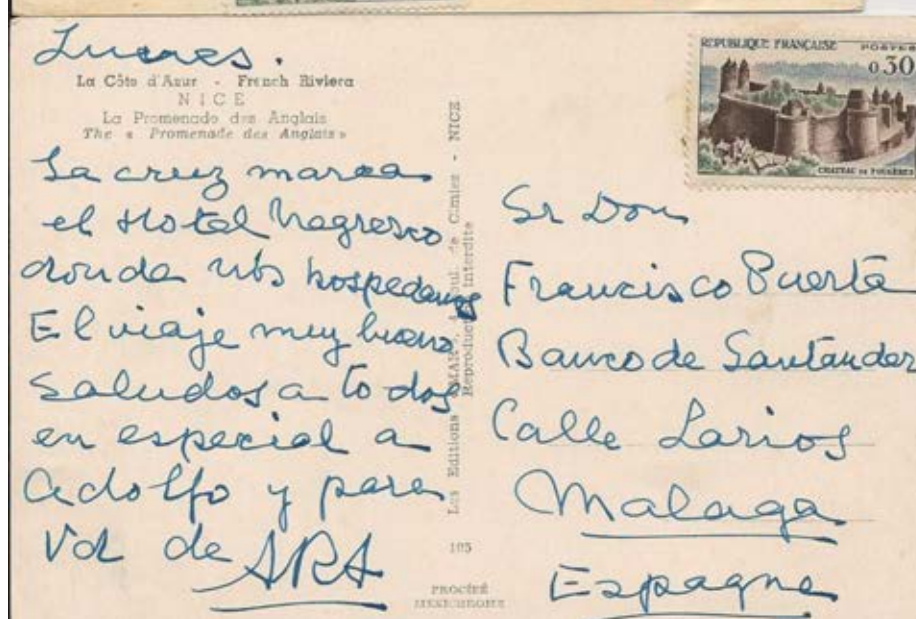 Lunes.
La Côte d'Azur - French Riviera
NICE
La Promenade des Anglais
The « Promenade des Anglais »
La cruz marca
el Hotel Negresco
donde nos hospedamos
El viaje muy bueno
saludos a todos
en especial a
Adolfo y para
Vd de
ARA
Les Editions Boul. de Cimiez - NICE
Reproduction Interdite
105
PROCÉDÉ
MEXICHROME
REPUBLIQUE FRANÇAISE POSTES
0,30
CHATEAU DE FOUGÈRES
Sr Don
Francisco Puerta
Banco de Santander
Calle Larios
Malaga
Espagne